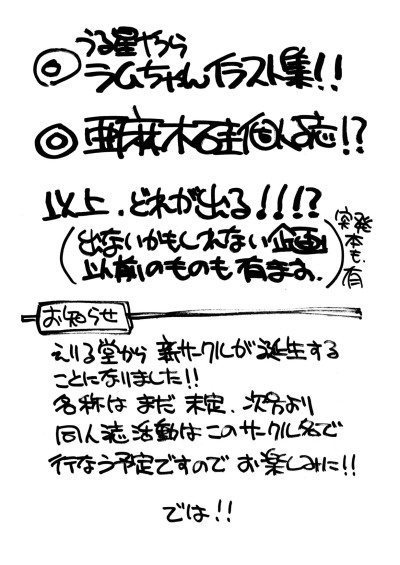 ◎ うる星やつら
ラムちゃんイラスト集!!
◎ 亜麻木硅個人誌!?
以上、どれが出る!!!?
(出ないかもしれない企画
以前のものも有ます。)
突発
本も
有
お知らせ
えりる堂から 新サークルが誕生する
ことになりました!!
名称は まだ 未定、次号より
同人誌活動は このサークル名で
行なう予定ですので お楽しみに!!
では!!